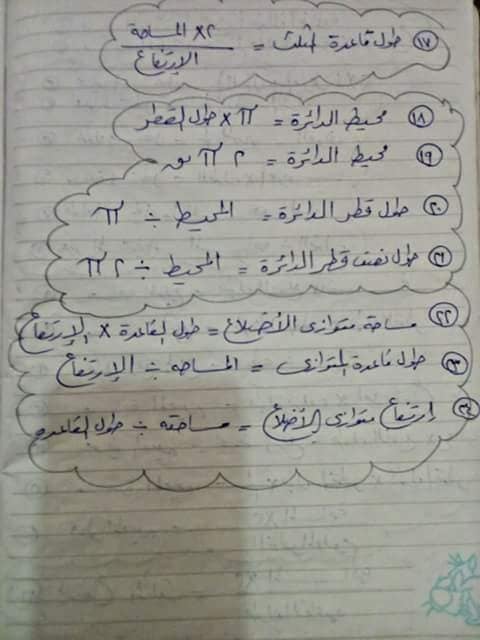 ١٧ طول قاعدة المثلث = ٢ × المساحة
الإرتفاع
١٨ محيط الدائرة = π × طول القطر
١٩ محيط الدائرة = ٢ π نق
٢٠ طول قطر الدائرة = المحيط ÷ π
٢١ طول نصف قطر الدائرة = المحيط ÷ ٢ π
٢٢ مساحة متوازى الأضلاع = طول القاعدة × الإرتفاع
٢٣ طول قاعدة المتوازى = المساحه ÷ الإرتفاع
٢٤ إرتفاع متوازى الأضلاع = مساحته ÷ طول القاعده